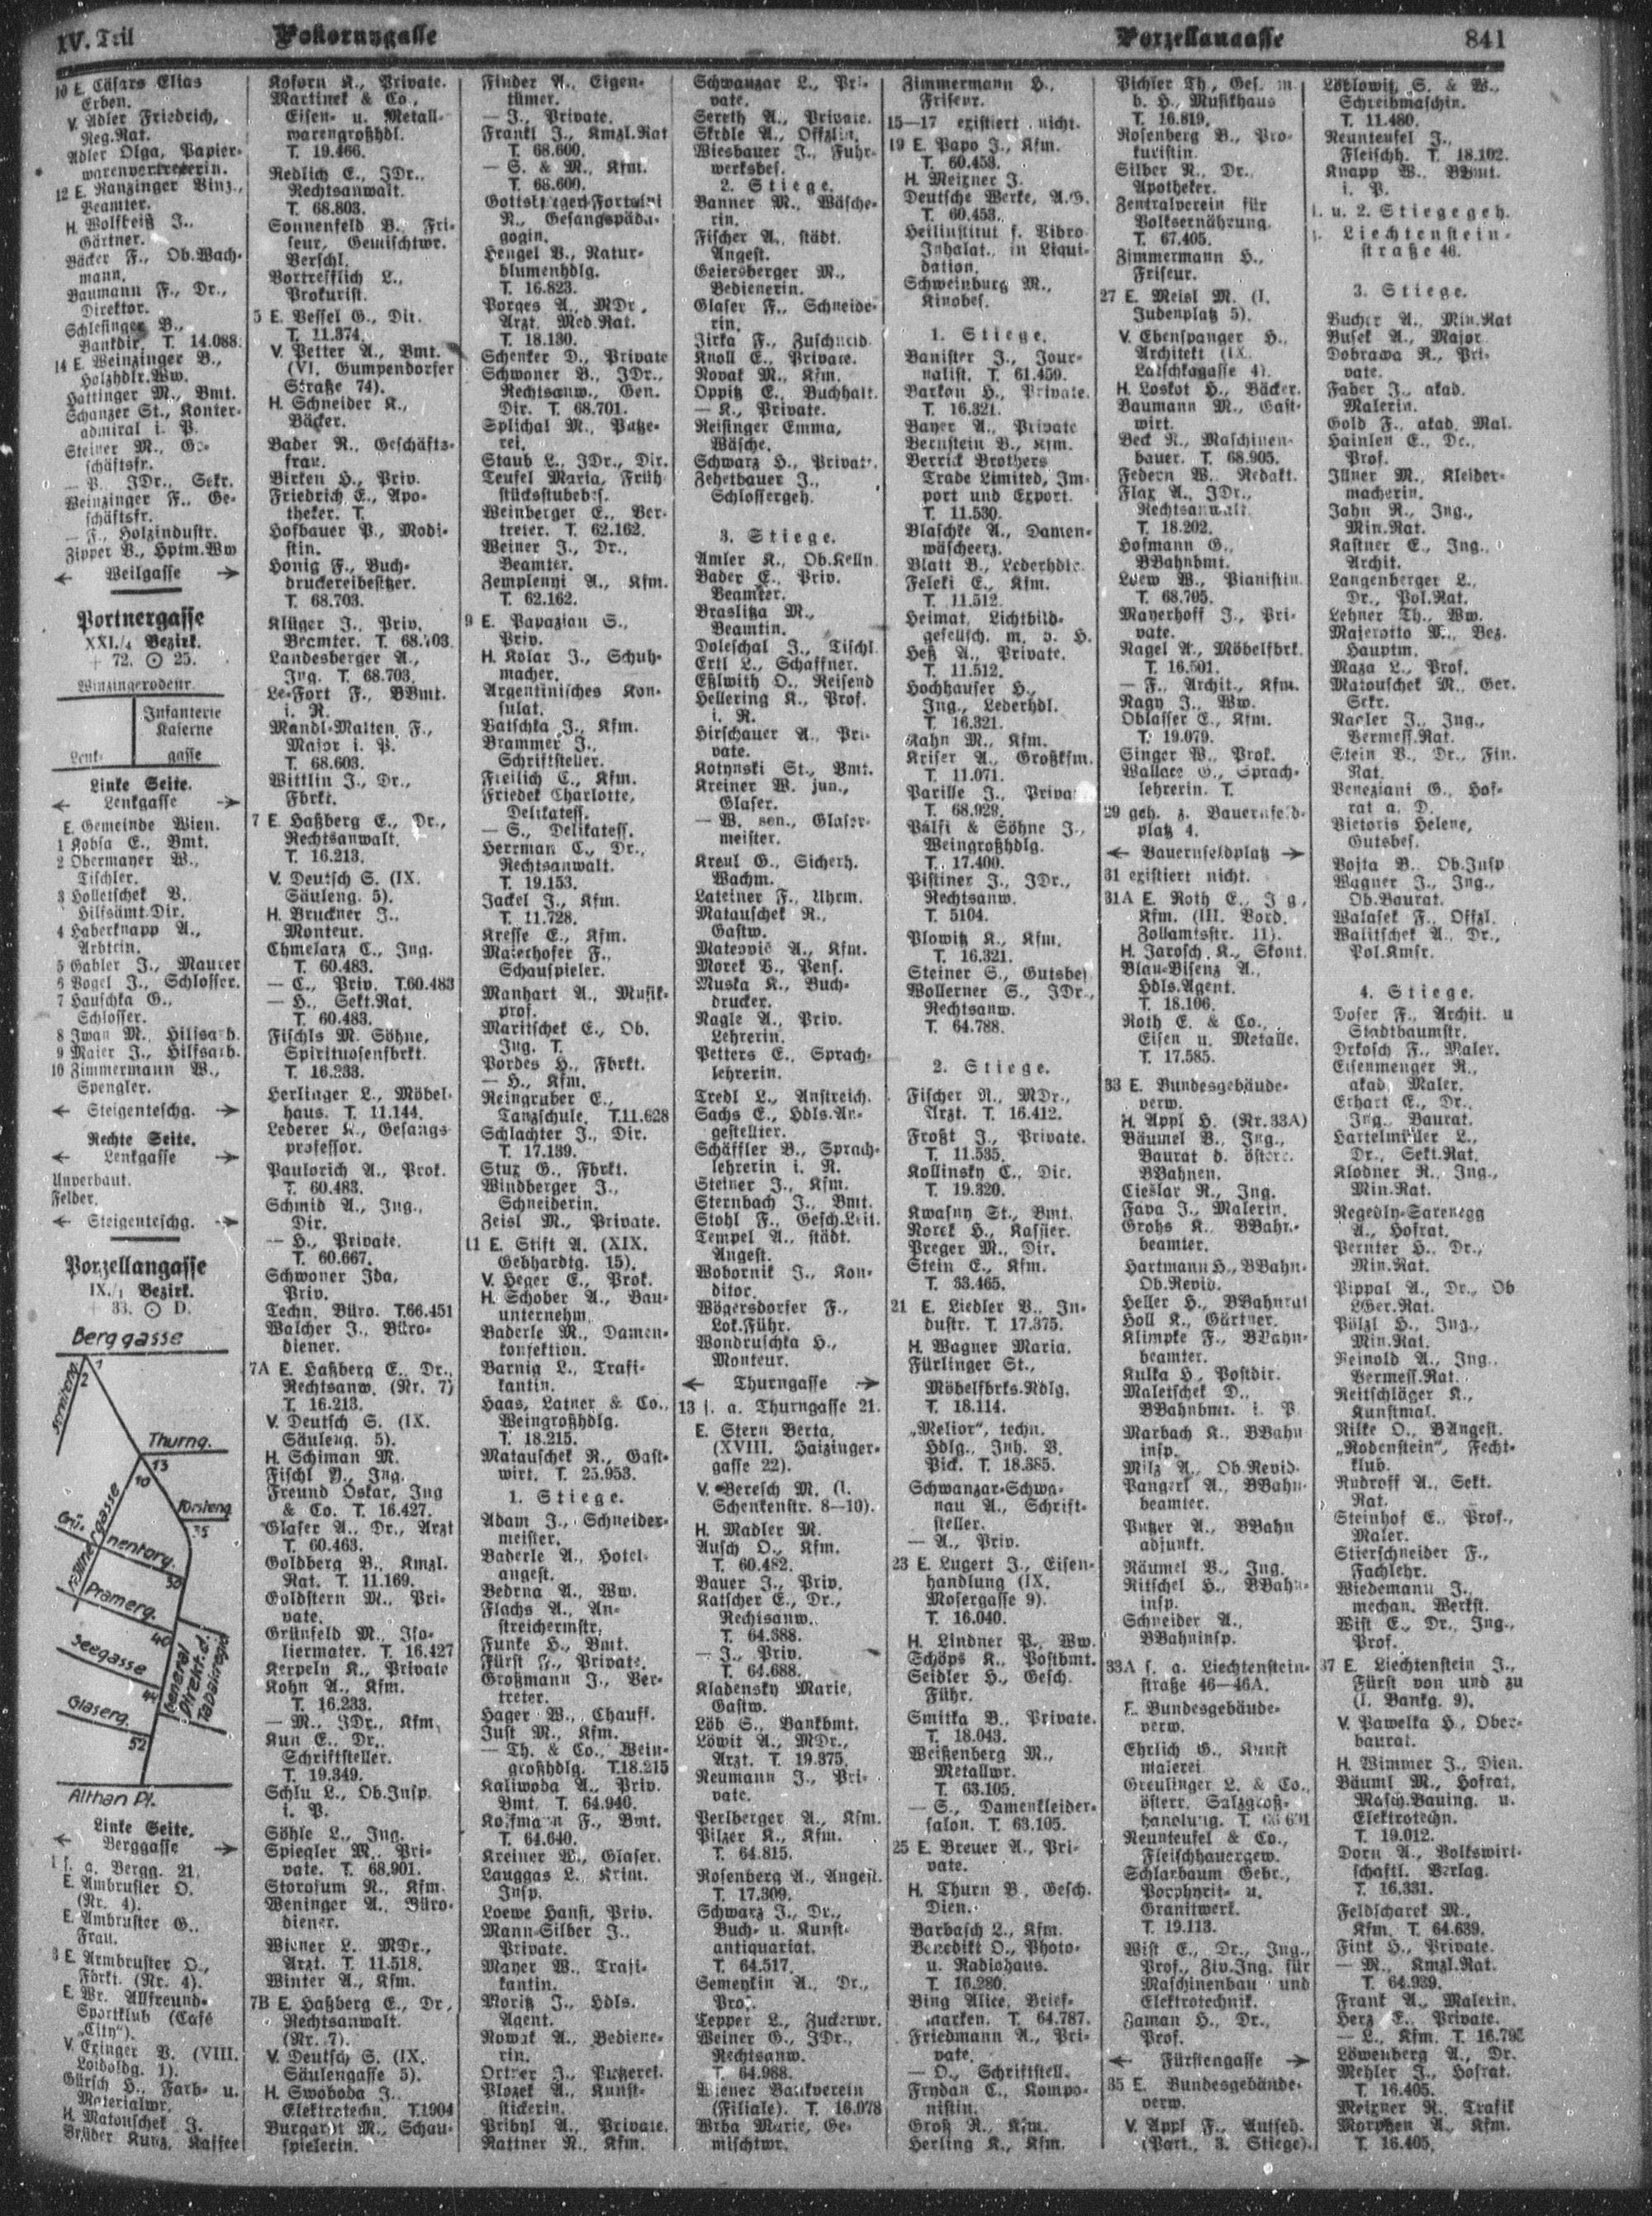 IV. Teil
Pokornygasse
Porzellangasse
841
10 E. Cäsars Elias
Erben.
V. Adler Friedrich,
Reg.Rat.
Adler Olga, Papier-
warenvertreterin.
12 E. Ranzinger Vinz.,
Beamter.
H. Wolfbeiß J.,
Gärtner.
Bäcker F., Ob.Wach-
mann.
Baumann F., Dr.,
Direktor.
Schlesinger B.,
Bankdir. T. 14.088.
14 E. Weinzinger B.,
Holzhdlr.Ww.
Hattinger M., Bmt.
Schanzer St., Konter-
admiral i. P.
Steiner M., Ge-
schäftsfr.
— P. JDr., Sekr.
Weinzinger F., Ge-
schäftsfr.
— F., Holzindustr.
Zipper B., Hptm.Ww
← Weilgasse →
Portnergasse
XXI./4 Bezirk.
+ 72. ⊙ 25.
Infanterie
Kaserne
gasse
Linke Seite.
← Lenkgasse →
E. Gemeinde Wien.
1 Kobsa E., Bmt.
2 Obermayer W.,
Tischler.
3 Holletschek V.
Hilfsämt.Dir.
4 Haberknapp A.,
Arbtrin.
5 Gabler J., Maurer
6 Vogel J., Schlosser.
7 Hauschka G.,
Schlosser.
8 Iwan M., Hilfsarb.
9 Maier J., Hilfsarb.
10 Zimmermann W.,
Spengler.
← Steigenteschg. →
Rechte Seite.
← Lenkgasse →
Unverbaut.
Felder.
← Steigenteschg. →
Porzellangasse
IX./1 Bezirk.
+ 33. ⊙ D.
Berggasse
1
2
Thurng.
13
10
Fürsteng.
35
Grü-
nentorg.
30
Pramerg.
40
Seegasse
44
General
Direkt. d.
Tabakregie
Glaserg.
52
Althan Pl.
Linke Seite.
← Berggasse →
1 s. a. Bergg. 21.
E. Ambruster O.
(Nr. 4).
E. Ambruster G.,
Frau.
3 E. Armbruster O.,
Fbrkt. (Nr. 4).
E. Wr. Allfreund-
Sportklub (Café
„City“).
V. Exinger B. (VIII.
Loidoldg. 1).
Gürsch H., Farb- u.
Materialwr.
H. Matouschek J.
Brüder Kunz, Kaffee
Kokorn K., Private.
Martinek & Co.,
Eisen- u. Metall-
warengroßhdl.
T. 19.466.
Redlich E., JDr.,
Rechtsanwalt.
T. 68.803.
Sonnenfeld B., Fri-
seur, Gemischtwr.
Verschl.
Vortrefflich L.,
Prokurist.
5 E. Bessel G., Dir.
T. 11.374.
V. Petter A., Bmt.
(VI. Gumpendorfer
Straße 74).
H. Schneider K.,
Bäcker.
Bader R., Geschäfts-
frau.
Birken H., Priv.
Friedrich E., Apo-
theker. T.
Hofbauer P., Modi-
stin.
Honig F., Buch-
druckereibesitzer.
T. 68.703.
Klüger J., Priv.
Beamter. T. 68.703.
Landesberger A.,
Ing. T. 68.703.
Le-Fort F., BBmt.
i. R.
Mandl-Malten F.,
Major i. P.
T. 68.603.
Wittlin J., Dr.,
Fbrkt.
7 E. Haßberg E., Dr.,
Rechtsanwalt.
T. 16.213.
V. Deutsch S. (IX.
Säuleng. 5).
H. Bruckner J.,
Monteur.
Chmelarz C., Ing.
T. 60.483.
— C., Priv. T.60.483
— H., Sekt.Rat.
T. 60.483.
Fischls M. Söhne,
Spirituosenfbrkt.
T. 16.233.
Herlinger L., Möbel-
haus. T. 11.144.
Lederer K., Gesangs
professor.
Paulorich A., Prok.
T. 60.483.
Schmid A., Ing.,
Dir.
— H., Private.
T. 60.667.
Schwoner Ida,
Priv.
Techn. Büro. T.66.451
Walcher J., Büro-
diener.
7A E. Haßberg E., Dr.,
Rechtsanw. (Nr. 7)
T. 16.213.
V. Deutsch S. (IX.
Säuleng. 5).
H. Schiman M.
Fischl H., Ing.
Freund Oskar, Ing
& Co. T. 16.427.
Glaser A., Dr., Arzt
T. 60.463.
Goldberg B., Kmzl.
Rat. T. 11.169.
Goldstern M., Pri-
vate.
Grünfeld M., Iso-
liermater. T. 16.427
Kerpely K., Private
Kohn A., Kfm.
T. 16.233.
— M., JDr., Kfm.
Kun E., Dr.,
Schriftsteller.
T. 19.349.
Schlu L., Ob.Insp.
i. P.
Söhle L., Ing.
Spiegler M., Pri-
vate. T. 68.901.
Storosum N., Kfm.
Weninger A., Büro-
diener.
Wiener L. MDr.,
Arzt. T. 11.518.
Winter A., Kfm.
7B E. Haßberg E., Dr,
Rechtsanwalt.
(Nr. 7).
V. Deutsch S. (IX.
Säulengasse 5).
H. Swoboda J.,
Elektrotechn. T.1904
Burgardt M., Schau-
spielerin.
Finder A., Eigen-
tümer.
— J., Private.
Frankl J., Kmzl.Rat
T. 68.600.
— S. & M., Kfm.
T. 68.600.
N., Gesangspäda-
gogin.
Hengel B., Natur-
blumenhdlg.
T. 16.823.
Porges A., MDr.,
Arzt. Med.Rat.
T. 18.130.
Schenker D., Private
Schwoner B., JDr.,
Rechtsanw., Gen.
Dir. T. 68.701.
Splichal M., Putze-
rei.
Staub L., JDr., Dir.
Teufel Maria, Früh
stücksstubebes.
Weinberger E., Ver-
treter. T. 62.162.
Weiner J., Dr.,
Beamter.
Zemplenyi A., Kfm.
T. 62.162.
9 E. Papazian S.,
Priv.
H. Kolar J., Schuh-
macher.
Argentinisches Kon-
sulat.
Batschka J., Kfm.
Brammer J.,
Schriftsteller.
Freilich C., Kfm.
Friedek Charlotte,
Delikatess.
— S., Delikatess.
Herrman C., Dr.,
Rechtsanwalt.
T. 19.153.
Jackel J., Kfm.
T. 11.728.
Kresse E., Kfm.
Maierhofer F.,
Schauspieler.
Manhart A., Musik-
prof.
Maritschek E., Ob.
Ing. T.
Pordes H., Fbrkt.
— H., Kfm.
Reingruber E.,
Tanzschule. T.11.628
Schlachter J., Dir.
T. 17.139.
Stux G., Fbrkt.
Windberger J.,
Schneiderin.
Zeisl M., Private.
11 E. Stift A. (XIX.
Gebhardtg. 15).
V. Heger E., Prok.
H. Schober A., Bau-
unternehm.
Baderle M., Damen-
konfektion.
Barnig L., Trafi-
kantin.
Haas, Latner & Co.,
Weingroßhdlg.
T. 18.215.
Matauschek R., Gast-
wirt. T. 25.953.
1. Stiege.
Adam J., Schneider-
meister.
Baderle A., Hotel-
angest.
Bedrna A., Ww.
Flachs A., An-
streichermstr.
Funke H., Bmt.
Fürst J., Private.
Großmann J., Ver-
treter.
Hager W., Chauff.
Just M., Kfm.
— Th. & Co., Wein-
großhdlg. T.18.215
Kaliwoda A., Priv.
Bmt. T. 64.940.
Koffmann F., Bmt.
T. 64.640.
Kreiner W., Glaser.
Lauggas L., Krim.
Insp.
Loewe Hansi, Priv.
Mann-Silber J.,
Private.
Mayer W., Trafi-
kantin.
Moritz J., Hdls.
Agent.
Nowak A., Bediene-
rin.
Ortner J., Putzerei.
Plozek A., Kunst-
stickerin.
Pribyl A., Private.
Rattner N., Kfm.
Schwanzar L., Pri-
vate.
Sereth A., Private.
Skrdle A., Offzlin.
Wiesbauer J., Fuhr-
werksbes.
2. Stiege.
Banner M., Wäsche-
rin.
Fischer A., städt.
Angest.
Geiersberger M.,
Bedienerin.
Glaser F., Schneide-
rin.
Jirka F., Zuschneid.
Knoll E., Private.
Novak M., Kfm.
Oppitz E., Buchhalt.
— K., Private.
Reisinger Emma,
Wäsche.
Schwarz H., Privat.
Zehetbauer J.,
Schlossergeh.
3. Stiege.
Amler K., Ob.Kelln.
Bader E., Priv.
Beamter.
Braslitza M.,
Beamtin.
Doleschal J., Tischl
Ertl L., Schaffner.
Eßlwith O., Reisend
Hellering K., Prof.
i. R.
Hirschauer A., Pri-
vate.
Kotynski St., Bmt.
Kreiner W. jun.,
Glaser.
— W. sen., Glaser-
meister.
Kreul G., Sicherh.
Wachm.
Lateiner F., Uhrm.
Matauschek R.,
Gastw.
Mateovic A., Kfm.
Morek B., Pens.
Muska K., Buch-
drucker.
Nagle A., Priv.
Lehrerin.
Petters E., Sprach-
lehrerin.
Tredl L., Anstreich.
Sachs E., Hdls.An-
gestellter.
Schäffler B., Sprach-
lehrerin i. R.
Steiner J., Kfm.
Sternbach J., Bmt.
Stohl F., Gesch.Leit.
Tempel A., städt.
Angest.
Wobornik J., Kon-
ditor.
Wögersdorfer F.,
Lok.Führ.
Wondruschka H.,
Monteur.
← Thurngasse →
13 s. a. Thurngasse 21.
E. Stern Berta,
(XVIII. Haizinger-
gasse 22).
V. Beresch M. (I.
Schenkenstr. 8—10).
H. Madler M.
Ausch O., Kfm.
T. 60.482.
Bauer J., Priv.
Katscher E., Dr.,
Rechtsanw.
T. 64.388.
— J., Priv.
T. 64.688.
Kladensky Marie,
Gastw.
Löb S., Bankbmt.
Löwit A., MDr.,
Arzt. T. 19.375.
Neumann J., Pri-
vate.
Perlberger A., Kfm.
Pilzer K., Kfm.
T. 64.815.
Rosenberg A., Angest.
T. 17.309.
Schwarz J., Dr.,
Buch- u. Kunst-
antiquariat.
T. 64.517.
Semeykin A., Dr.,
Pro.
Tepper L., Zuckerwr.
Weiner G., JDr.,
Rechtsanw.
T. 64.988.
Wiener Bankverein
(Filiale). T. 16.078
Wrba Marie, Ge-
mischtwr.
Zimmermann H.,
Friseur.
15—17 existiert nicht.
19 E. Papo J., Kfm.
T. 60.453.
H. Meixner J.
Deutsche Werke, A.G.
T. 60.453.
Heilinstitut f. Vibro
Inhalat., in Liqui-
dation.
Schweinburg M.,
Kinobes.
1. Stiege.
Banister J., Jour-
nalist. T. 61.459.
Barkon H., Private.
T. 16.321.
Bayer A., Private
Bernstein B., Kfm.
Berrick Brothers
Trade Limited, Im-
port und Export.
T. 11.530.
Blaschke A., Damen-
wäscheerz.
Blatt B., Lederhdlr.
Feleki E., Kfm.
T. 11.512.
Heimat, Lichtbild-
gesellsch. m. b. H.
Heß A., Private.
T. 11.512.
Hochhauser H.,
Ing., Lederhdl.
T. 16.321.
Kahn M., Kfm.
Kriser A., Großkfm.
T. 11.071.
Parille J., Priva
T. 68.929.
Pálfi & Söhne J.,
Weingroßhdlg.
T. 17.400.
Pistiner J., JDr.,
Rechtsanw.
T. 5104.
Plowitz K., Kfm.
T. 16.321.
Steiner S., Gutsbes
Wollerner S., JDr.,
Rechtsanw.
T. 64.788.
2. Stiege.
Fischer R., MDr.,
Arzt. T. 16.412.
Froßt J., Private.
T. 11.535.
Kollinsky C., Dir.
T. 19.320.
Kwasny St., Bmt.
Norek H., Kassier.
Preger M., Dir.
Stein E., Kfm.
T. 33.465.
21 E. Liedler B., In-
dustr. T. 17.375.
H. Wagner Maria.
Fürlinger St.,
Möbelfbrks.Ndlg.
T. 18.114.
„Melior“, techn.
Hdlg., Inh. B.
Pick. T. 18.385.
Schwanzar-Schwa-
nau A., Schrift-
steller.
— A., Priv.
23 E. Lugert J., Eisen-
handlung (IX.
Mosergasse 9).
T. 16.040.
H. Lindner P., Ww.
Schöps K., Postbmt.
Seidler H., Gesch.
Führ.
Smitka B., Private.
T. 18.043.
Weißenberg M.,
Metallwr.
T. 63.105.
— S., Damenkleider-
salon. T. 63.105.
25 E. Breuer A., Pri-
vate.
H. Thurn B., Gesch.
Dien.
Barbasch L., Kfm.
Benedikt O., Photo-
u. Radiohaus.
T. 16.280.
Bing Alice, Brief-
marken. T. 64.787.
Friedmann A., Pri-
vate.
— O., Schriftstell.
Frydan C., Kompo-
nistin.
Groß R., Kfm.
Herling K., Kfm.
Pichler Th., Ges. m.
b. H., Musikhaus
T. 16.819.
Rosenberg B., Pro-
kuristin.
Silber N., Dr.,
Apotheker.
Zentralverein für
Volksernährung.
T. 67.405.
Zimmermann H.,
Friseur.
27 E. Meisl M. (I.
Judenplatz 5).
V. Ebenspanger H.,
Architekt (IX.
Latschkagasse 4).
H. Loskot H., Bäcker.
Baumann M., Gast-
wirt.
Beck R., Maschinen-
bauer. T. 68.905.
Federn W., Redakt.
Flax A., JDr.,
Rechtsanwalt.
T. 18.202.
Hofmann G.,
BBahnbmt.
Loew W., Pianistin.
T. 68.705.
Mayerhoff J., Pri-
vate.
Nagel A., Möbelfbrk.
T. 16.501.
— F., Archit., Kfm.
Nagy J., Ww.
Oblasser E., Kfm.
T. 19.079.
Singer W., Prok.
Wallace G., Sprach-
lehrerin. T.
29 geh. z. Bauernfeld-
platz 4.
← Bauernfeldplatz →
31 existiert nicht.
31A E. Roth E., I g.,
Kfm. (III. Vord.
Zollamtsstr. 11).
H. Jarosch K., Skont.
Blau-Bisenz A.,
Hdls.Agent.
T. 18.106.
Roth E. & Co.,
Eisen u. Metalle.
T. 17.585.
33 E. Bundesgebäude-
verw.
H. Appl H. (Nr.33A)
Bäumel B., Ing.,
Baurat d. österr.
BBahnen.
Cieslar R., Ing.
Fava J., Malerin.
Grohs K., BBahn-
beamter.
Hartmann H., BBahn-
Ob.Revid.
Heller H., BBahnrat
Holl K., Gärtner.
Klimpke F., BBahn-
beamter.
Kulka H., Postdir.
Maletschek D.,
BBahnbmt. i. P.
Marbach K., BBahn
insp.
Milz A., Ob.Revid.
Pangerl A., BBahn-
beamter.
Putzer A., BBahn
adjunkt.
Räumel B., Ing.
Ritschel H., BBahn-
insp.
Schneider A.,
BBahninsp.
33A s. a. Liechtenstein-
straße 46—46A.
E. Bundesgebäude-
verw.
Ehrlich G., Kunst
malerei
Greulinger L. & Co.,
österr. Salzgroß-
handlung. T.
Neunteufel & Co.,
Fleischhauergew.
Schlarbaum Gebr.,
Porphyrit- u.
Granitwerk.
T. 19.113.
Wist E., Dr., Ing.,
Prof., Ziv.Ing. für
Maschinenbau und
Elektrotechnik.
Zaman H., Dr.,
Prof.
← Fürstengasse →
35 E. Bundesgebäude-
verw.
V. Appl F., Aufseh.
(Part., 3. Stiege).
Löblowitz S. & W.,
Schreibmaschin.
T. 11.480.
Neunteufel J.,
Fleischh. T. 18.102.
Knapp W., BBmt.
i. P.
1. u. 2. Stiege geh.
z. Liechtenstein-
straße 46.
3. Stiege.
Bucher A., Min.Rat
Busek A., Major
Dobrawa R., Pri-
vate.
Faber J., akad.
Malerin.
Gold F., akad. Mal.
Hainlen E., Dr.,
Prof.
Illner M., Kleider-
macherin.
Jahn R., Ing.,
Min.Rat.
Kastner E., Ing.,
Archit.
Langenberger L.,
Dr., Pol.Rat.
Lehner Th., Ww.
Majerotto W., Bez.
Hauptm.
Maza L., Prof.
Matouschek M., Ger.
Sekr.
Nagler J., Ing.,
Vermess.Rat.
Stein V., Dr., Fin.
Rat.
Veneziani G., Hof-
rat a. D.
Vietoris Helene,
Gutsbes.
Vojta B., Ob.Insp
Wagner J., Ing.,
Ob.Baurat.
Walasek F., Offzl.
Walitschek A., Dr.,
Pol.Kmsr.
4. Stiege.
Doser F., Archit. u
Stadtbaumstr.
Drkosch F., Maler.
Eisenmenger R.,
akad. Maler.
Erhart E., Dr.,
Ing., Baurat.
Hartelmüller L.,
Dr., Sekt.Rat.
Klodner R., Ing.,
Min.Rat.
Regedly-Sarenegg
A., Hofrat.
Pernter H., Dr.,
Min.Rat.
Pippal A., Dr., Ob
LGer.Rat.
Pölzl H., Ing.,
Min.Rat.
Reinold A., Ing.,
Vermess.Rat.
Reitschläger K.,
Kunstmal.
Rilke O., BAngest.
„Rodenstein“, Fecht-
klub.
Rudroff A., Sekt.
Rat.
Steinhof E., Prof.,
Maler.
Stierschneider F.,
Fachlehr.
Wiedemann J.,
mechan. Werkst.
Wist E., Dr., Ing.,
Prof.
37 E. Liechtenstein J.,
Fürst von und zu
(I. Bankg. 9).
V. Pawelka H., Ober-
baurat.
H. Wimmer J., Dien.
Bäuml M., Hofrat,
Masch.Bauing. u.
Elektrotechn.
T. 19.012.
Dorn A., Volkswirt-
schaftl. Verlag.
T. 16.331.
Feldscharek M.,
Kfm. T. 64.639.
Fink H., Private.
— M., Kmzl.Rat.
T. 64.939.
Frank A., Malerin.
Herz E., Private.
— L., Kfm. T. 16.795
Löwenberg A., Dr.
Mehler J., Hofrat.
T. 16.405.
Meixner R., Trafik
Morphen A., Kfm.
T. 16.405.